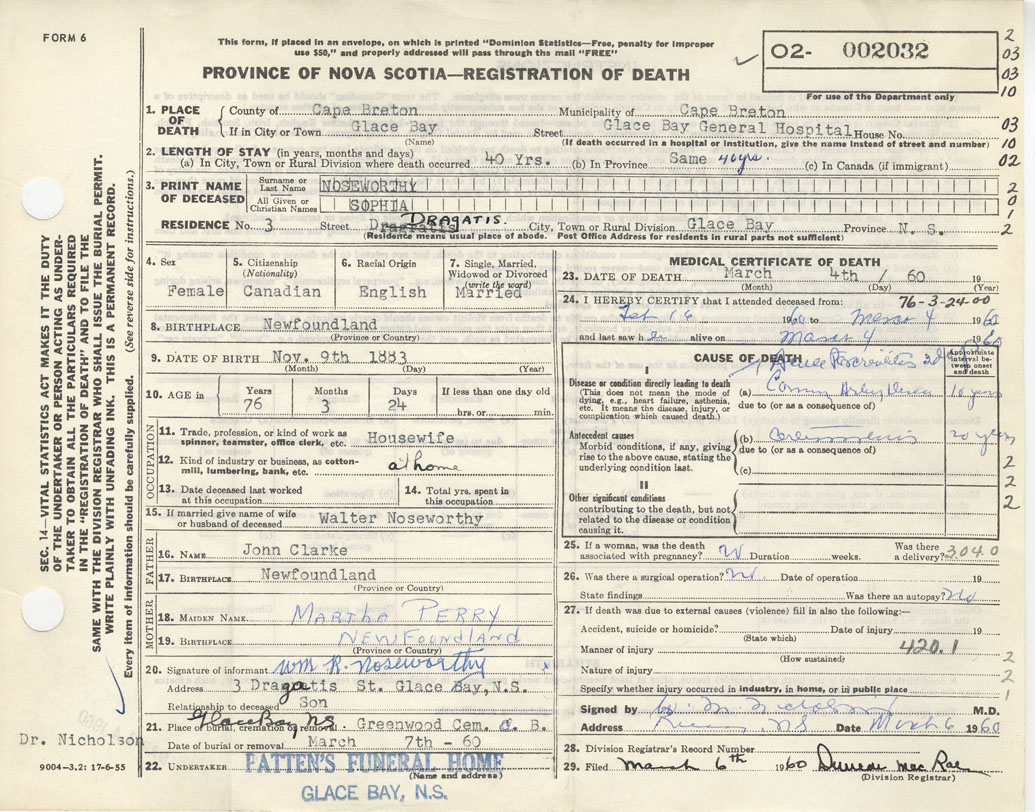 FORM 6
This form, if placed in an envelope, on which is printed "Dominion Statistics—Free, penalty for improper
use $50," and properly addressed will pass through the mail "FREE"
PROVINCE OF NOVA SCOTIA—REGISTRATION OF DEATH
O2- 002032
For use of the Department only
2
03
03
10
03
10
02
2
0
1
2
1. PLACE OF DEATH
County of Cape Breton Municipality of Cape Breton
If in City or Town Glace Bay Street Glace Bay General Hospital House No.
(Name) (If death occurred in a hospital or institution, give the name instead of street and number)
2. LENGTH OF STAY (in years, months and days)
(a) In City, Town or Rural Division where death occurred 40 Yrs. (b) In Province Same 40 yrs. (c) In Canada (if immigrant)
3. PRINT NAME OF DECEASED
Surname or Last Name NOSEWORTHY
All Given or Christian Names SOPHIA
RESIDENCE No. 3 Street DRAGATIS. City, Town or Rural Division Glace Bay Province N. S.
(Residence means usual place of abode. Post Office Address for residents in rural parts not sufficient)
4. Sex
Female
5. Citizenship
(Nationality)
Canadian
6. Racial Origin
English
7. Single, Married, Widowed or Divorced
(write the word)
Married
8. BIRTHPLACE Newfoundland
(Province or Country)
9. DATE OF BIRTH Nov. 9th 1883
(Month) (Day) (Year)
10. AGE in
Years 76
Months 3
Days 24
If less than one day old
hrs. or min.
OCCUPATION
11. Trade, profession, or kind of work as
spinner, teamster, office clerk, etc. Housewife
12. Kind of industry or business, as cotton-
mill, lumbering, bank, etc. at home
13. Date deceased last worked
at this occupation
14. Total yrs. spent in
this occupation
15. If married give name of wife
or husband of deceased Walter Noseworthy
FATHER
16. NAME Jonn Clarke
17. BIRTHPLACE Newfoundland
(Province or Country)
MOTHER
18. MAIDEN NAME MARTHA PERRY
19. BIRTHPLACE NEWFOUNDLAND
(Province or Country)
20. Signature of informant Wm R. Noseworthy
Address 3 Dragatis St. Glace Bay, N.S.
Relationship to deceased Son
21. Place of burial, cremation or removal Glace Bay N.S. Greenwood Cem. C. B.
Date of burial or removal March 7th - 60
22. UNDERTAKER PATTEN'S FUNERAL HOME
(Name and address)
GLACE BAY, N.S.
MEDICAL CERTIFICATE OF DEATH
23. DATE OF DEATH March 4th / 60 19
(Month) (Day) (Year)
24. I HEREBY CERTIFY that I attended deceased from: 76-3-24-00
Feb 16 1960 to March 4 1960
and last saw her alive on March 4 1960
CAUSE OF DEATH
Approximate interval between onset and death
I
Disease or condition directly leading to death
(This does not mean the mode of
dying, e.g., heart failure, asthenia,
etc. It means the disease, injury, or
complication which caused death.)
(a) 10 years
due to (or as a consequence of)
Antecedent causes
Morbid conditions, if any, giving
rise to the above cause, stating the
underlying condition last.
(b) 20 years
due to (or as a consequence of)
(c)
2
2
II
Other significant conditions
contributing to the death, but not
related to the disease or condition
causing it.
2
25. If a woman, was the death
associated with pregnancy? Duration weeks. Was there
a delivery? 3040
26. Was there a surgical operation? No. Date of operation 19
State findings Was there an autopsy? No
27. If death was due to external causes (violence) fill in also the following:—
Accident, suicide or homicide? Date of injury 19
(State which)
Manner of injury 420.1
(How sustained)
2
Nature of injury
2
Specify whether injury occurred in industry, in home, or in public place
1
Signed by M.D.
Address N.S Date March 6 1960
28. Division Registrar's Record Number
29. Filed March 6th 1960 Duncan Mac Rae
(Division Registrar)
SEC. 14—VITAL STATISTICS ACT MAKES IT THE DUTY
OF THE UNDERTAKER OR PERSON ACTING AS UNDER-
TAKER TO OBTAIN ALL THE PARTICULARS REQUIRED
IN THE "REGISTRATION OF DEATH" AND TO FILE THE
SAME WITH THE DIVISION REGISTRAR WHO SHALL ISSUE THE BURIAL PERMIT.
WRITE PLAINLY WITH UNFADING INK. THIS IS A PERMANENT RECORD.
Every item of information should be carefully supplied. (See reverse side for instructions.)
Dr. Nicholson
9004-3.2: 17-6-55